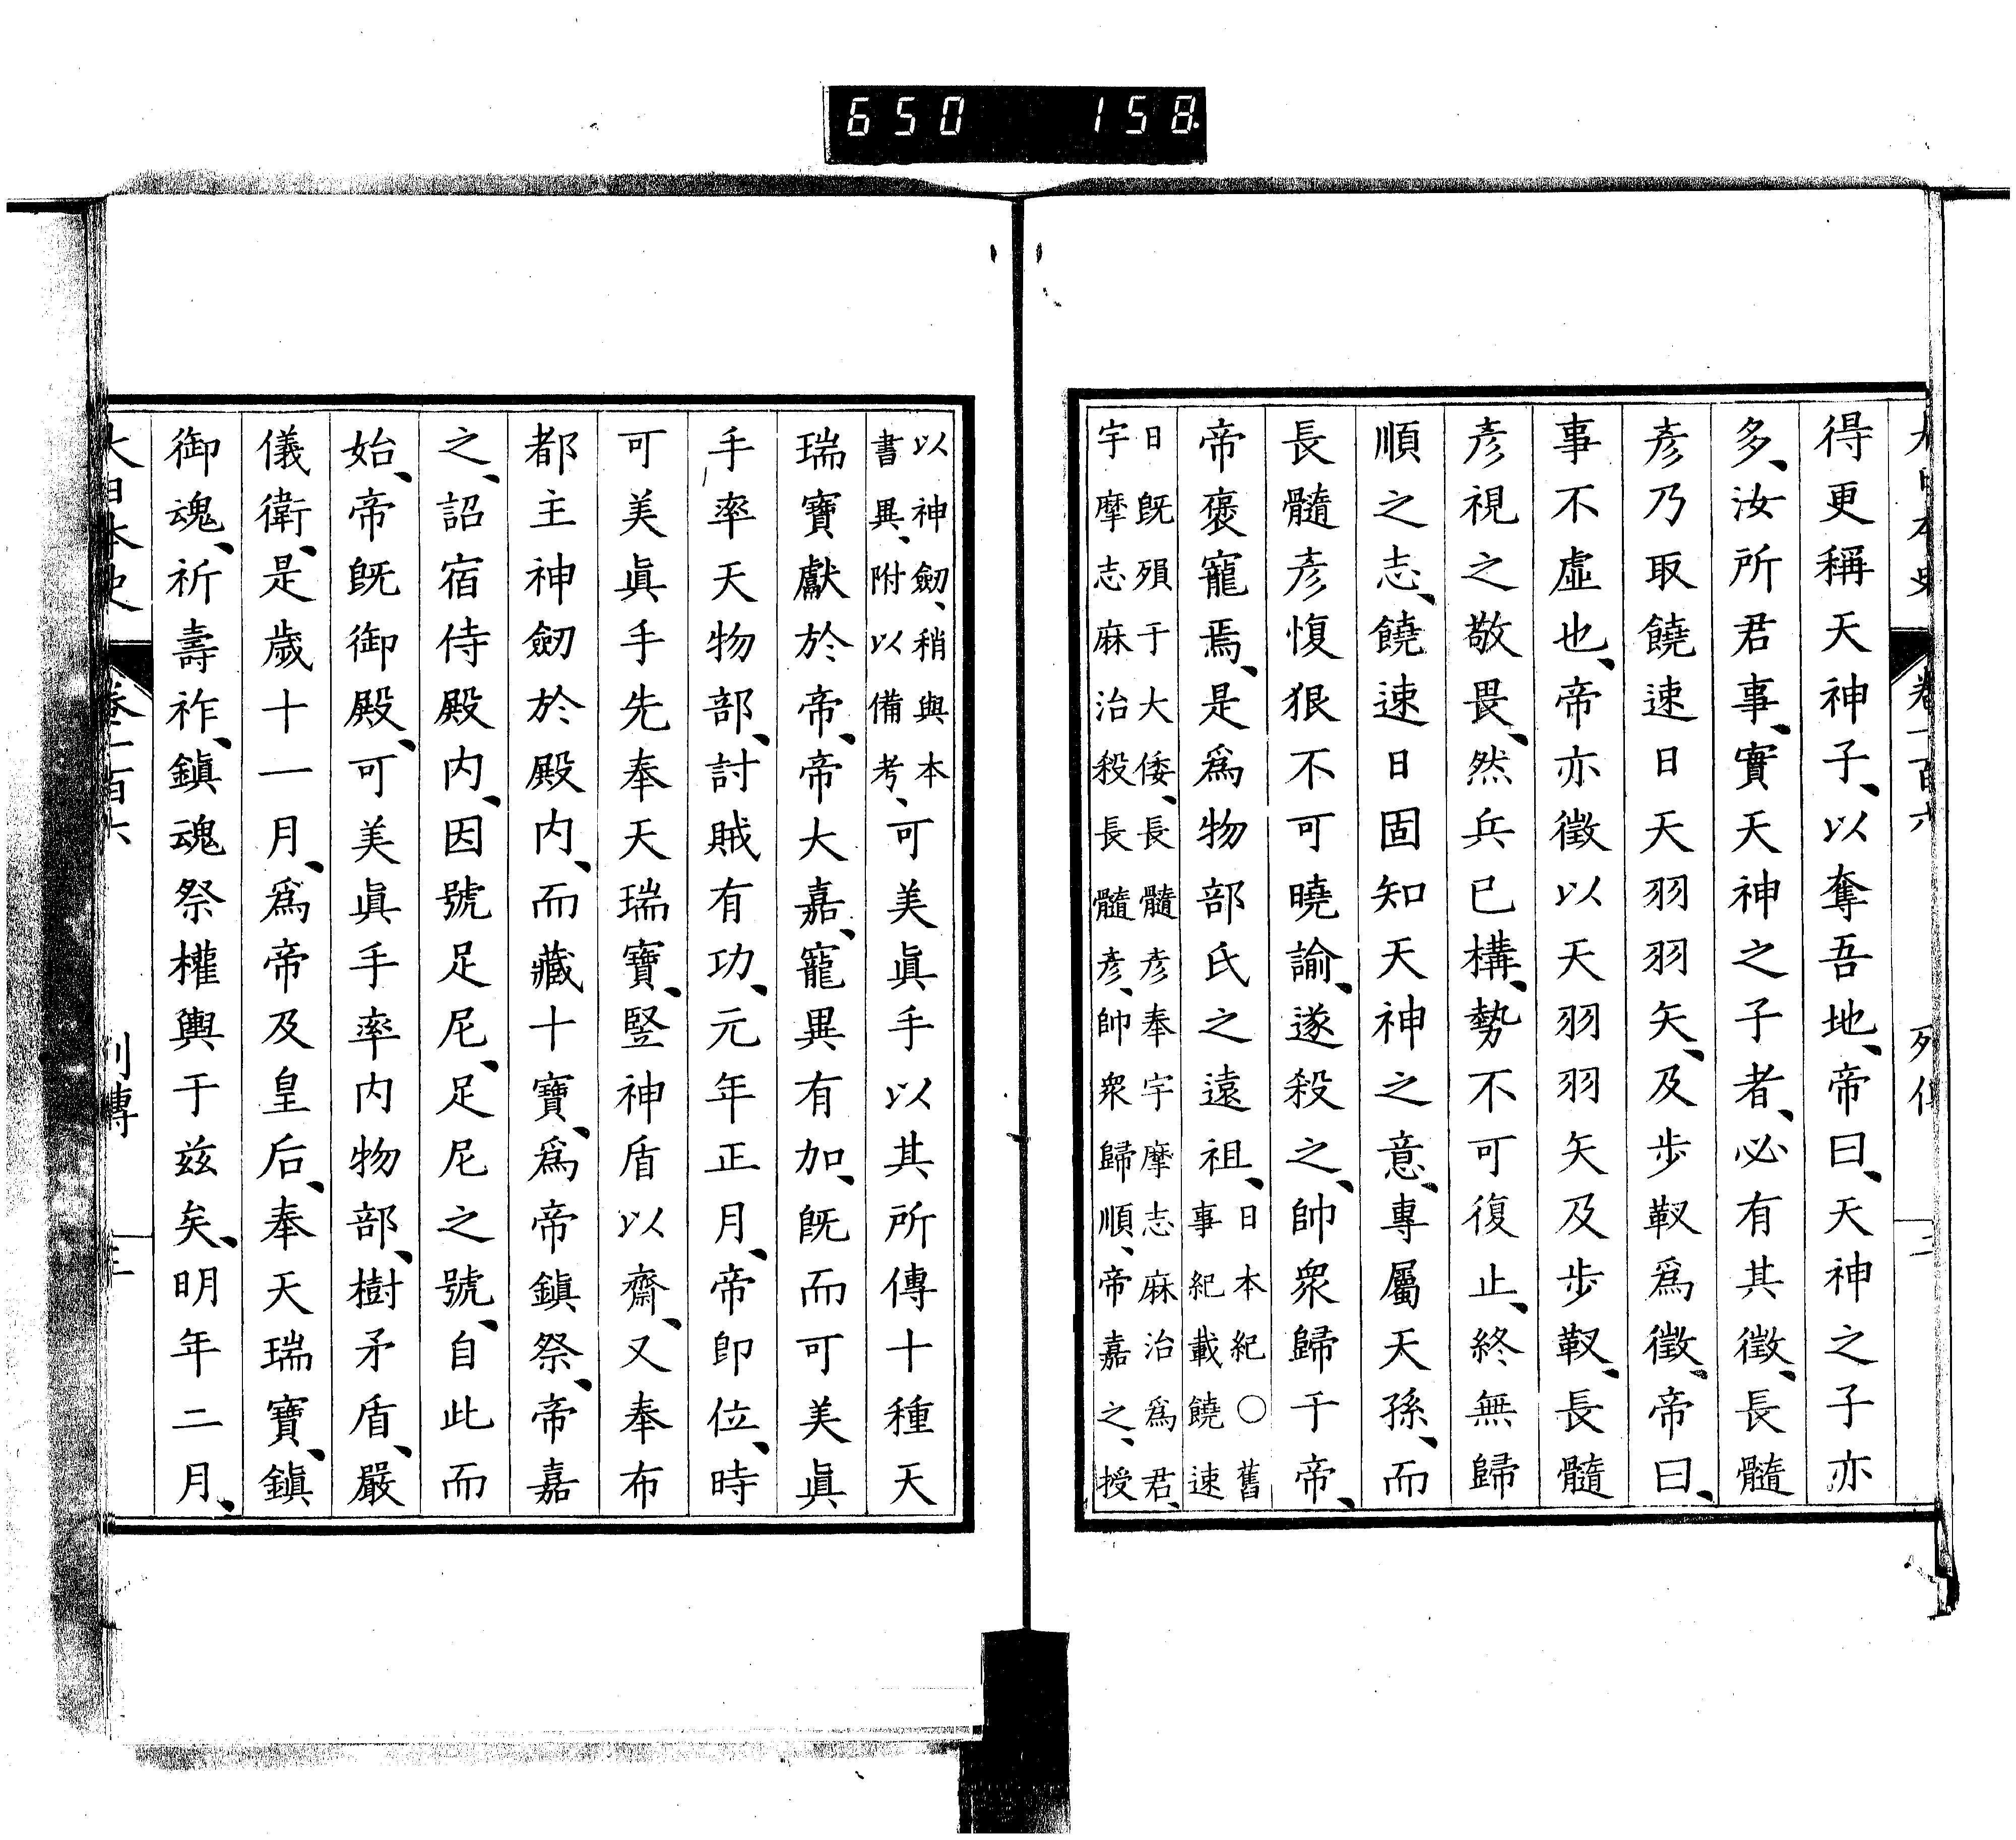 650 158
大日本史 卷一百六 列傳 二
得更稱天神子、以奪吾地、帝曰、天神之子亦
多、汝所君事、實天神之子者、必有其徵、長髓
彦乃取饒速日天羽羽矢、及歩靫爲徵、帝曰、
事不虛也、帝亦徵以天羽羽矢及歩靫、長髓
彦視之敬畏、然兵已構、勢不可復止、終無歸
順之志、饒速日固知天神之意、專屬天孫、而
長髓彦愎狠不可曉諭、遂殺之、帥衆歸于帝、
帝褒寵焉、是爲物部氏之遠祖、日本紀○舊
事紀載饒速
日既殞于大倭、長髓彦奉宇摩志麻治爲君、
宇摩志麻治殺長髓彦、帥衆歸順、帝嘉之、授
以神劒、稍與本
書異、附以備考、可美眞手以其所傳十種天
瑞寶獻於帝、帝大嘉、寵異有加、既而可美眞
手率天物部、討賊有功、元年正月、帝卽位、時
可美眞手先奉天瑞寶、竪神盾以齋、又奉布
都主神劒於殿内、而藏十寶、爲帝鎭祭、帝嘉
之、詔宿侍殿内、因號足尼、足尼之號、自此而
始、帝既御殿、可美眞手率内物部、樹矛盾、嚴
儀衛、是歲十一月、爲帝及皇后、奉天瑞寶、鎭
御魂、祈壽祚、鎭魂祭權輿于兹矣、明年二月、
大日本史 卷一百六 列傳 三